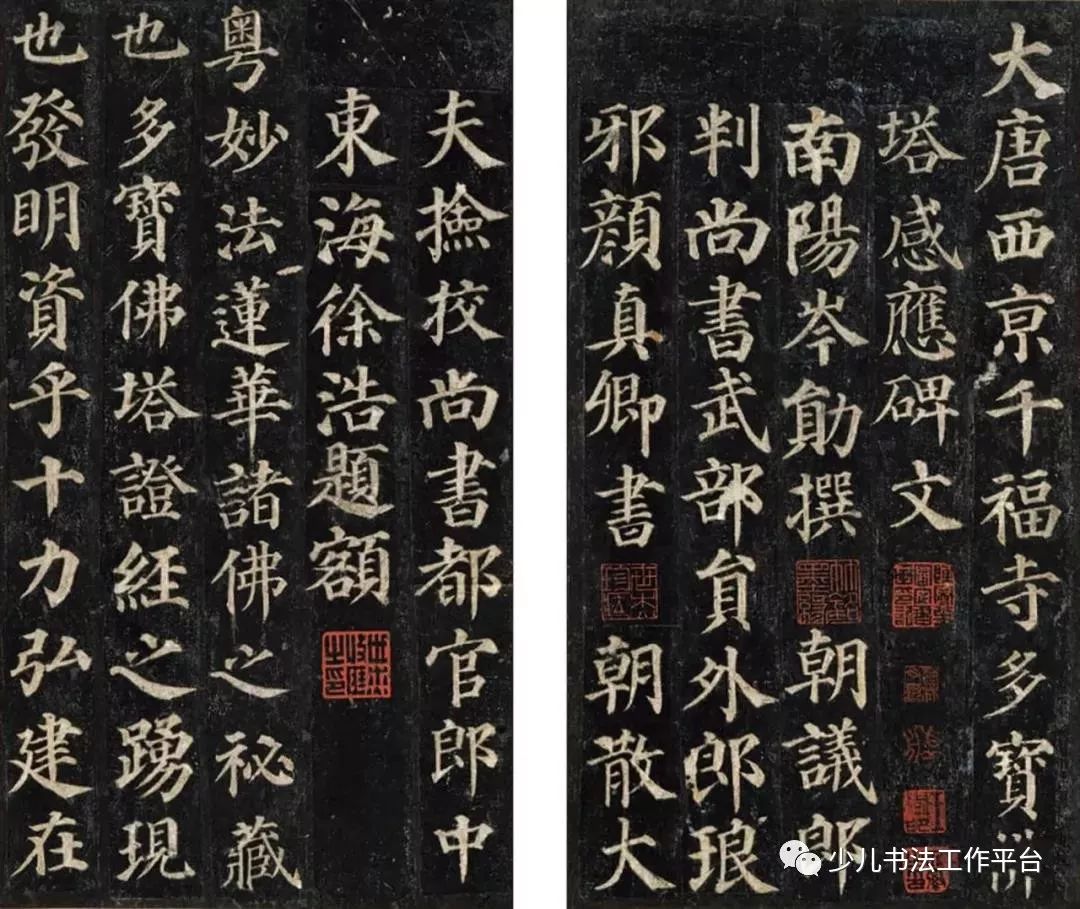 大唐西京千福寺多寶
塔感應碑文
南陽岑勛撰 朝議郎
判尚書武部貟外郎琅
邪顏真卿書 朝散大
夫撿挍尚書都官郎中
東海徐浩題額
粵妙法蓮華諸佛之秘藏
也多寶佛塔證經之踴現
也發明資乎十力弘建在
少儿书法工作平台